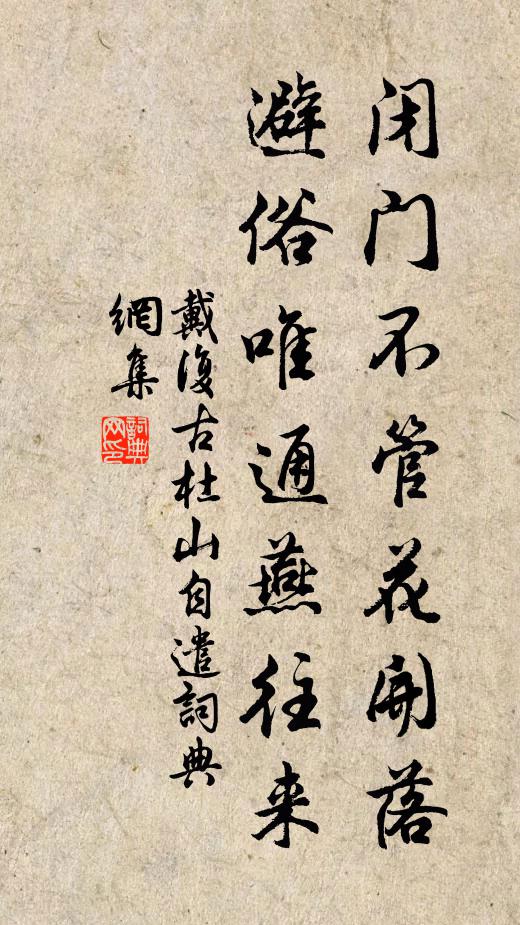 闭门不管花開落
避俗唯通燕往来
戴復古杜山自遣詞典
網集
詞典
网印